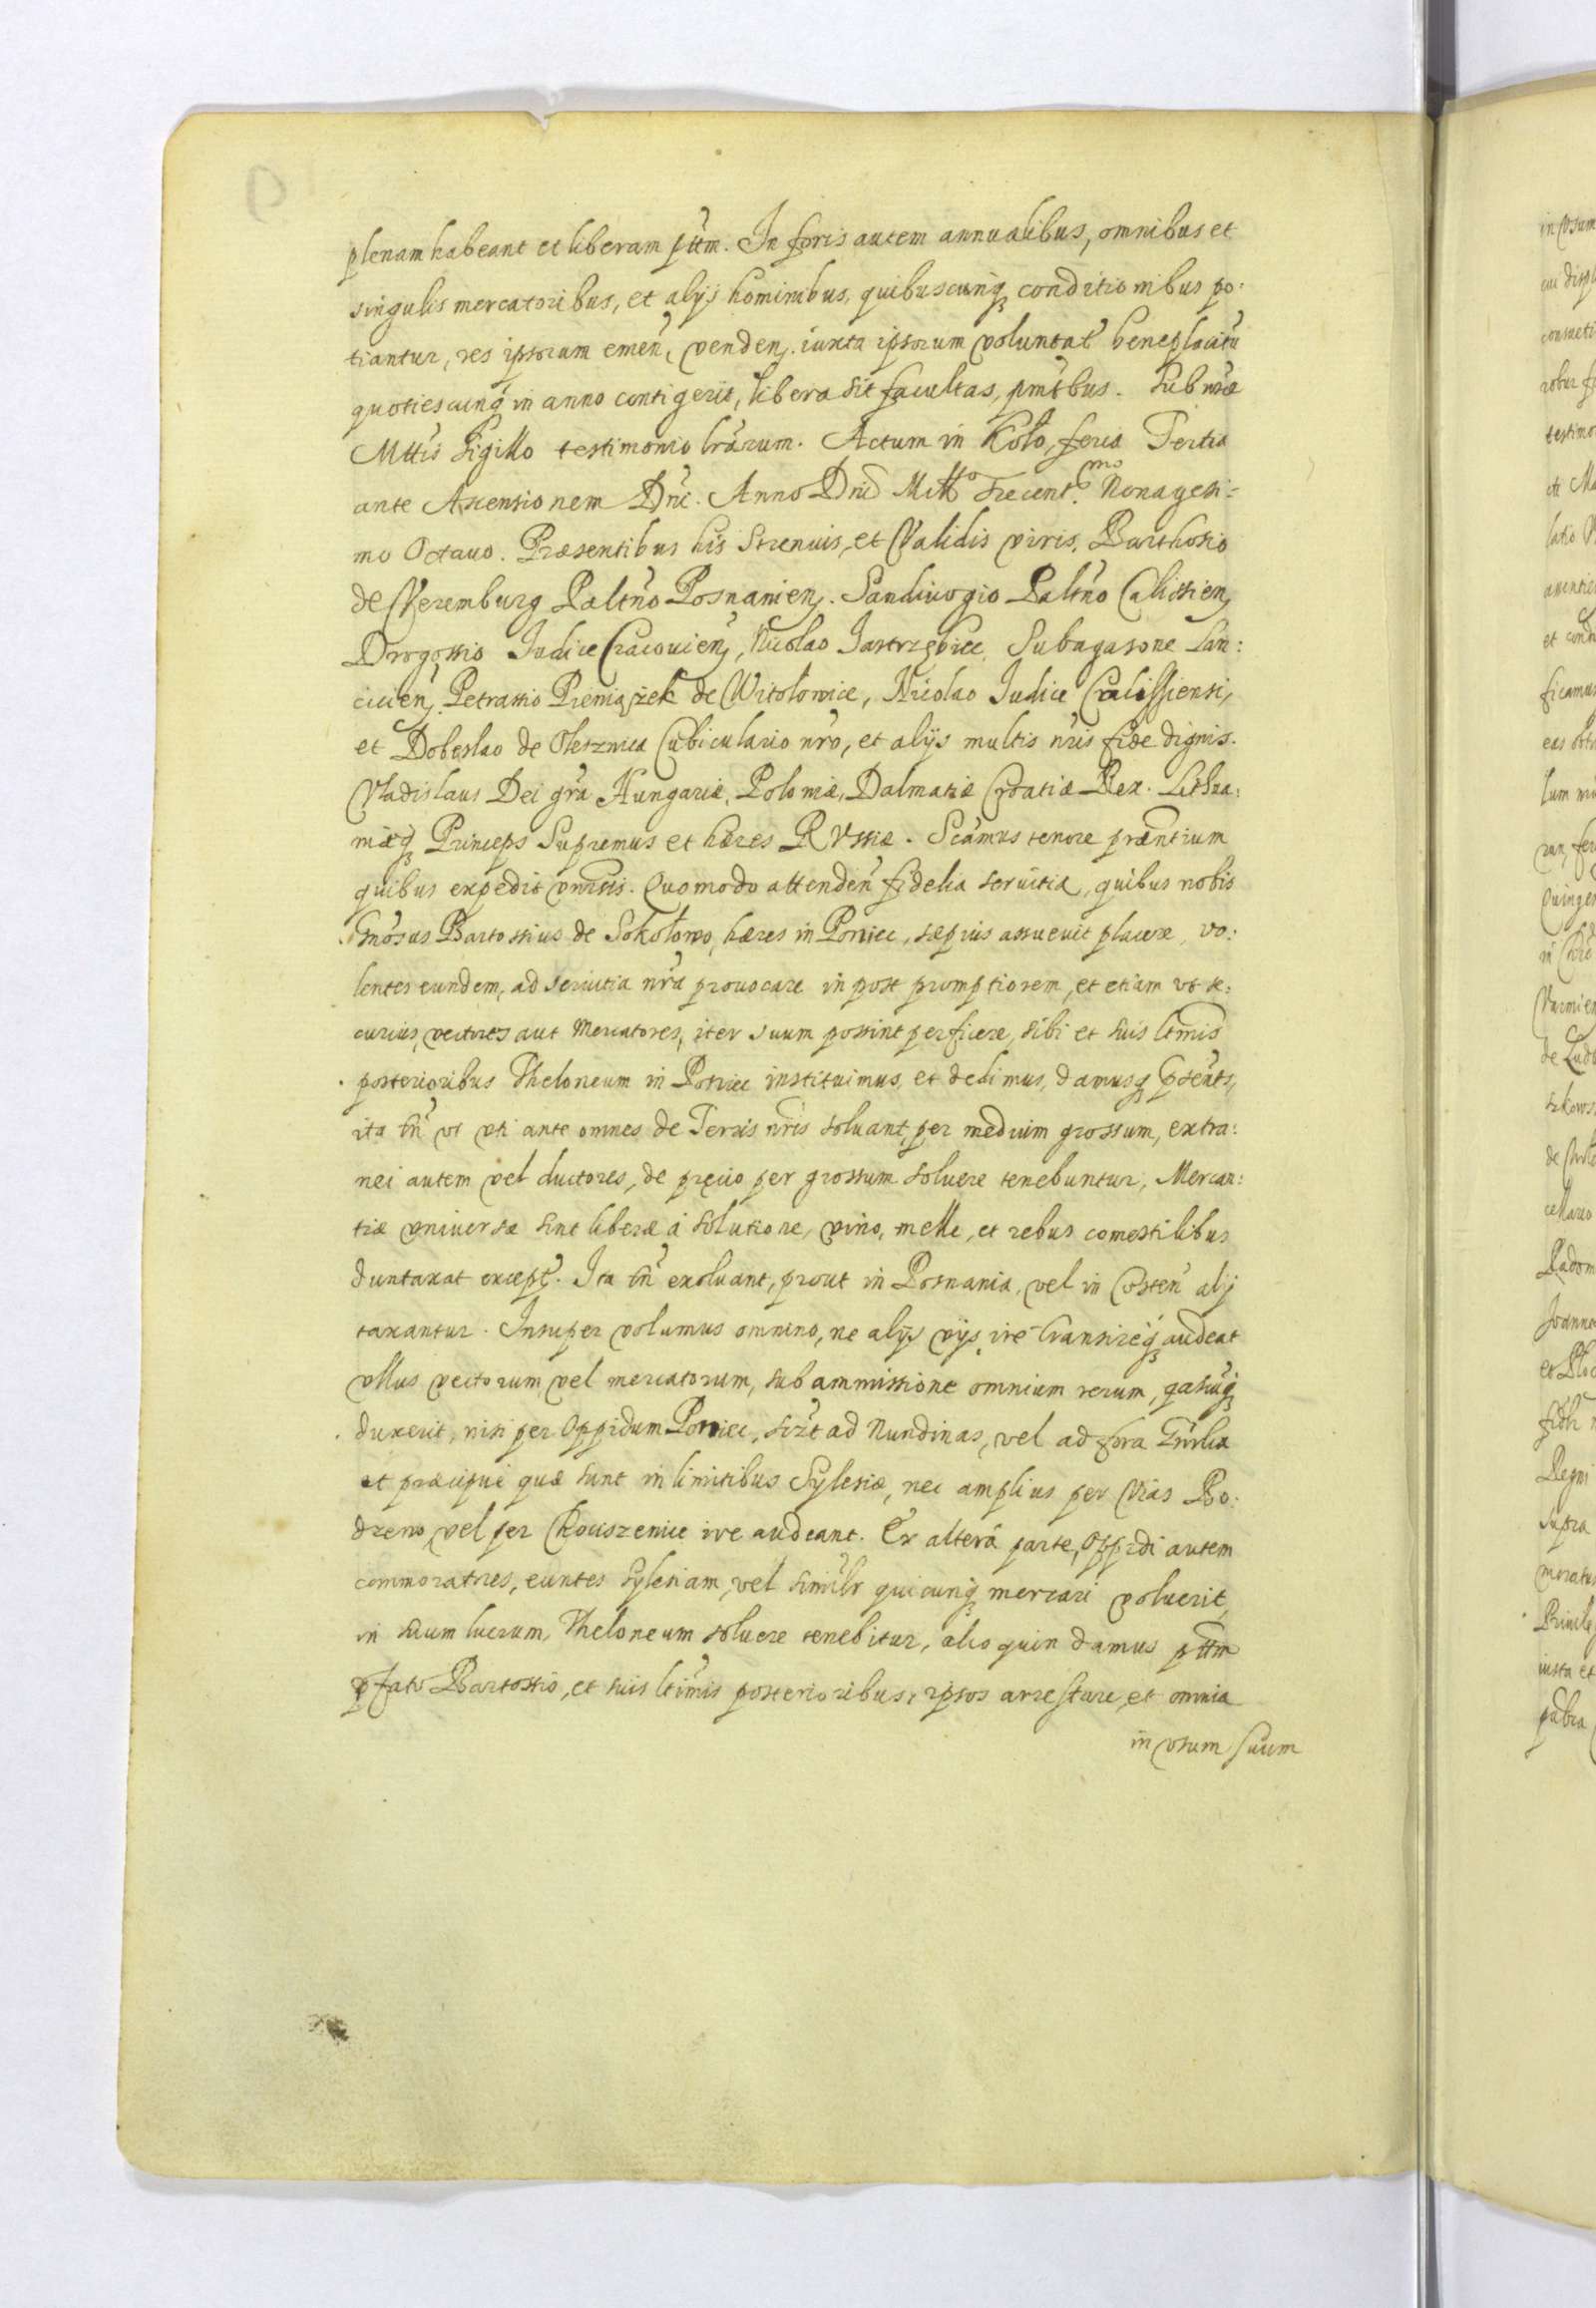 plenam habeant et liberam ptm̃. In foris autem annualibus, omnibus et
singulis mercatoribus, et alijs hominibus, quibuscunq3 conditionibus po:
tiantur, res ipsorum emeñ, venden. iuxta ipsorum voluntat̃ beneplacitũ
quotiescunq̃ in anno contigerit, libera sit facultas, pñtbus. Sub nr̃æ
Mttis Sigillo testimonio lrãrum. Actum in Koło, feria Tertia
ante Ascensionem Dñi. Anno Dñi Millo Trecent.mo Nonagesi:
mo Octauo. Præsentibus his Strenuis, et Validis viris, Barthosio
de Veremburg Paltño Posnanien. Sandiuogio Paltño Calissien,
Drogossio Iudice Cracouien, Nicolao Jastrzębiec, Subagasone Lan:
cicien, Petrassio Pieniążek de Witołowice, Nicolao Iudice Calissiensi,
et Dobeslao de Olesznica Cubiculario nr̃o, et alijs multis nr̃is fide dignis.
Vladislaus Dei gr̃a Hungariæ, Poloniæ, Dalmatiæ Croatiæ Rex. Lithua:
niæq3 Princeps Supremus et hæres RVssiæ. Sc̃amus tenore præñtium
quibus expedit vnĩsis. Quomodo attendeñ fidelia seruitia, quibus nobis
Gñosus Bartossius de Sokołowo, hæres in Poniec, sæpius assueuit placere, vo:
lentes eundem, ad seruitia nr̃a prouocare in post promptiorem, et etiam vt se:
curius, vectores aut Mercatores, iter suum possint perficere, sibi et suis ltm̃is
posterioribus Theloneum in Poniec instituimus, et dedimus, damusq3 psẽnts,
ita tñ vt vti ante omnes de Terris nr̃is soluant, per medium grossum, extra:
nei autem vel ductores, de pręcio per grossum soluere tenebuntur, Mercan:
tiæ vniuersæ sint liberæ á solutione, vino, melle, et rebus comestilibus
duntaxat except̃. Ita tñ exoluant, prout in Posnania, vel in Costeñ alij
taxantur. Insuper volumus omnino, ne alijs vijs, ire transireq3 audeat
vllus vectorum vel mercatorum, sub ammissione omnium rerum,
duxerit, nisi per Oppidum Poniec, ad Nundinas, vel ad fora
et præcipuè quæ sunt in limitibus Sylesiæ, nec amplius per Vias Bo:
dzeno, vel per Chociszenice ire audeant. Ex alterá parte, Oppidi autem
commoratores, euntes Sylesiam, vel simĩlr quicunq3 mercari voluerit,
in suum lucrum, Theloneum soluere tenebitur, alioquin damus pttm̃
pfato Bartossio, et suis ltim̃is posterioribus, ipsos arrestare, et omnia
in vsum suum